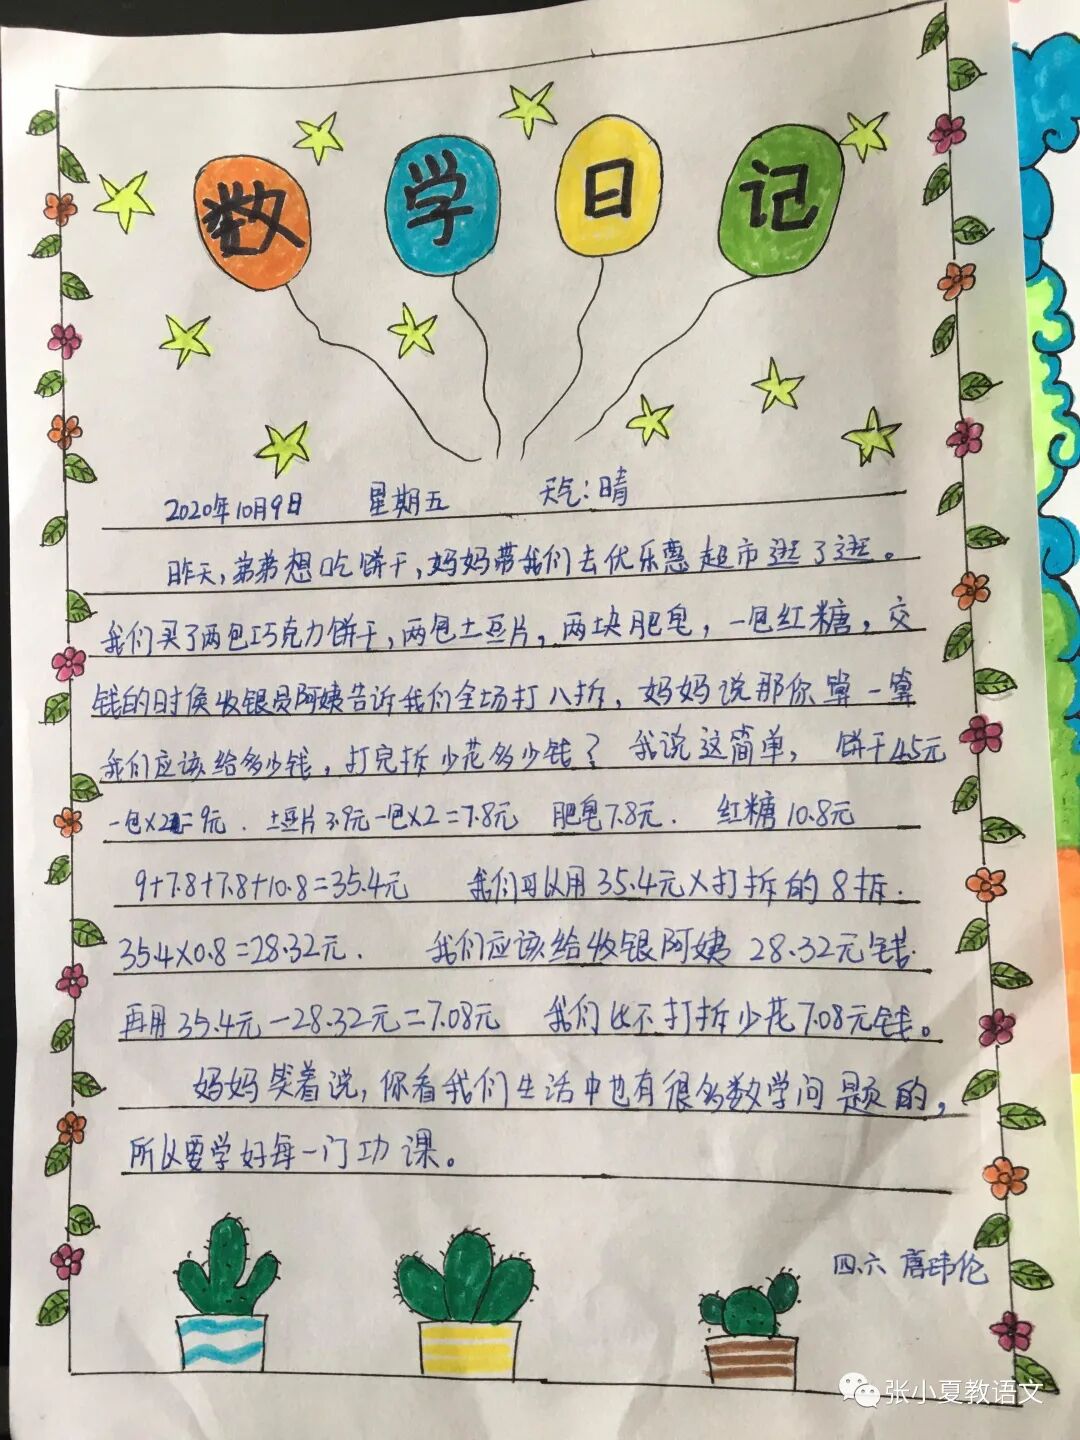 数学日记
2020年10月9日 星期五 天气:晴
昨天,弟弟想吃饼干,妈妈带我们去优乐惠超市逛了逛。
我们买了两包巧克力饼干,两包土豆片,两块肥皂,一包红糖,交
钱的时候收银员阿姨告诉我们全场打八折,妈妈说那你算一算
我们应该给多少钱,打完折少花多少钱? 我说这简单, 饼干4.5元
一包×2=9元. 土豆片3.9元一包×2=7.8元 肥皂7.8元. 红糖10.8元
9+7.8+7.8+10.8=35.4元 我们可以用35.4元×打折的8折.
35.4×0.8=28.32元. 我们应该给收银阿姨28.32元钱.
再用35.4元-28.32元=7.08元 我们比不打折少花7.08元钱。
妈妈笑着说,你看我们生活中也有很多数学问题的,
所以要学好每一门功课。
四.六 唐玮伦
张小夏教语文